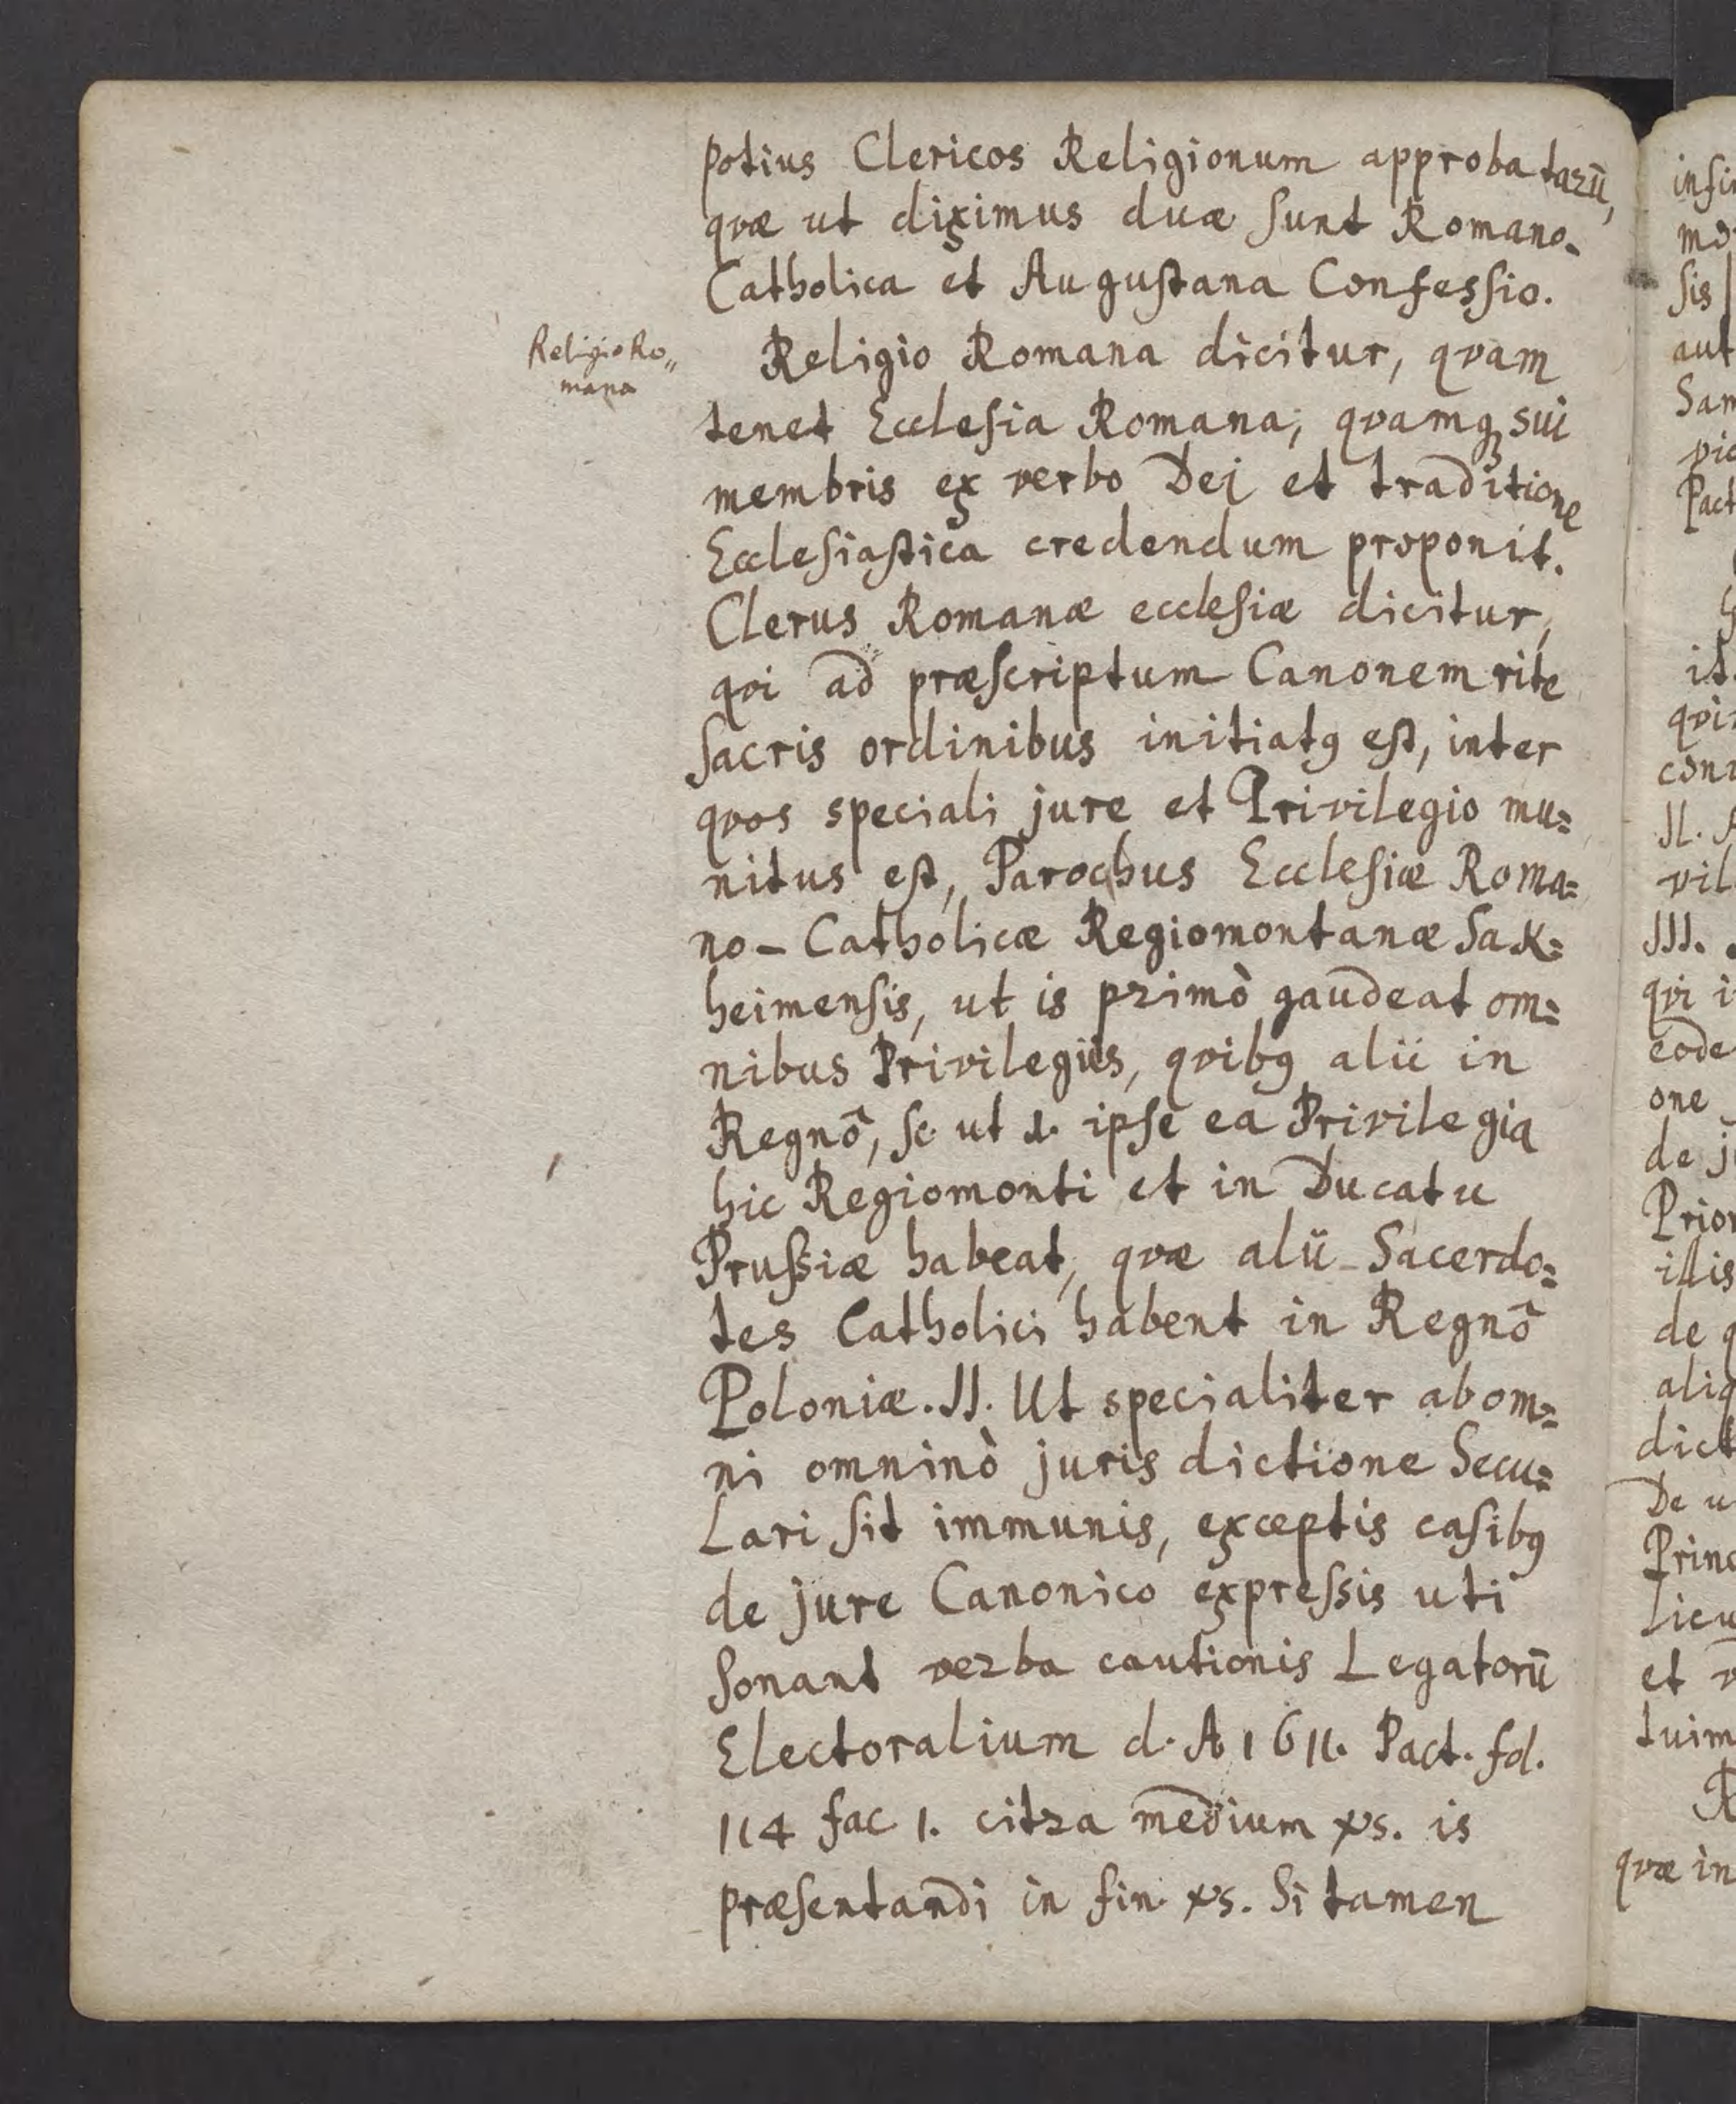 potius Clericos Religionum approbatarū,
qvæ ut diximus duæ sunt Romano-
Catholica et Augustana Confessio.
Religio Ro„
mana
Religio Romana dicitur, qvam
tenet Ecclesia Romana, qvamqꝫ sui
membris ex verbo Dei et traditione
Ecclesiastica credendum proponit.
Clerus Romanæ ecclesiæ dicitur,
qvi ad præscriptum Canonem rite
Sacris ordinibus initiatꝰ est, inter
qvos speciali jure et Privilegio mu=
nitus est, Parochus Ecclesiæ Roma=
no-Catholicæ Regiomontanæ Sak=
heimensis, ut is primò gaudeat om=
nibus Privilegiis, qvibꝰ alii in
Regnô, sc. ut d. ipse ea Privilegia
hic Regiomonti et in Ducatu
Prussiæ habeat, qvæ alii Sacerdo=
tes Catholici habent in Regnô
Poloniæ. II. Ut specialiter ab om=
ni omninò juris dictione Secu=
Lari sit immunis, exceptis casibꝰ
de jure Canonico expressis uti
Sonant verba cautionis Legatorū
Electoralium d. A 1611. Pact. fol.
114 fac 1. citra medium xs. is
præsentandi in fin. xs. Si tamen